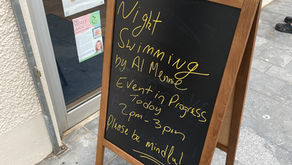 Night
Swimming
by Al
Event in Progress
Today
2pm-3pm
Please be mindful